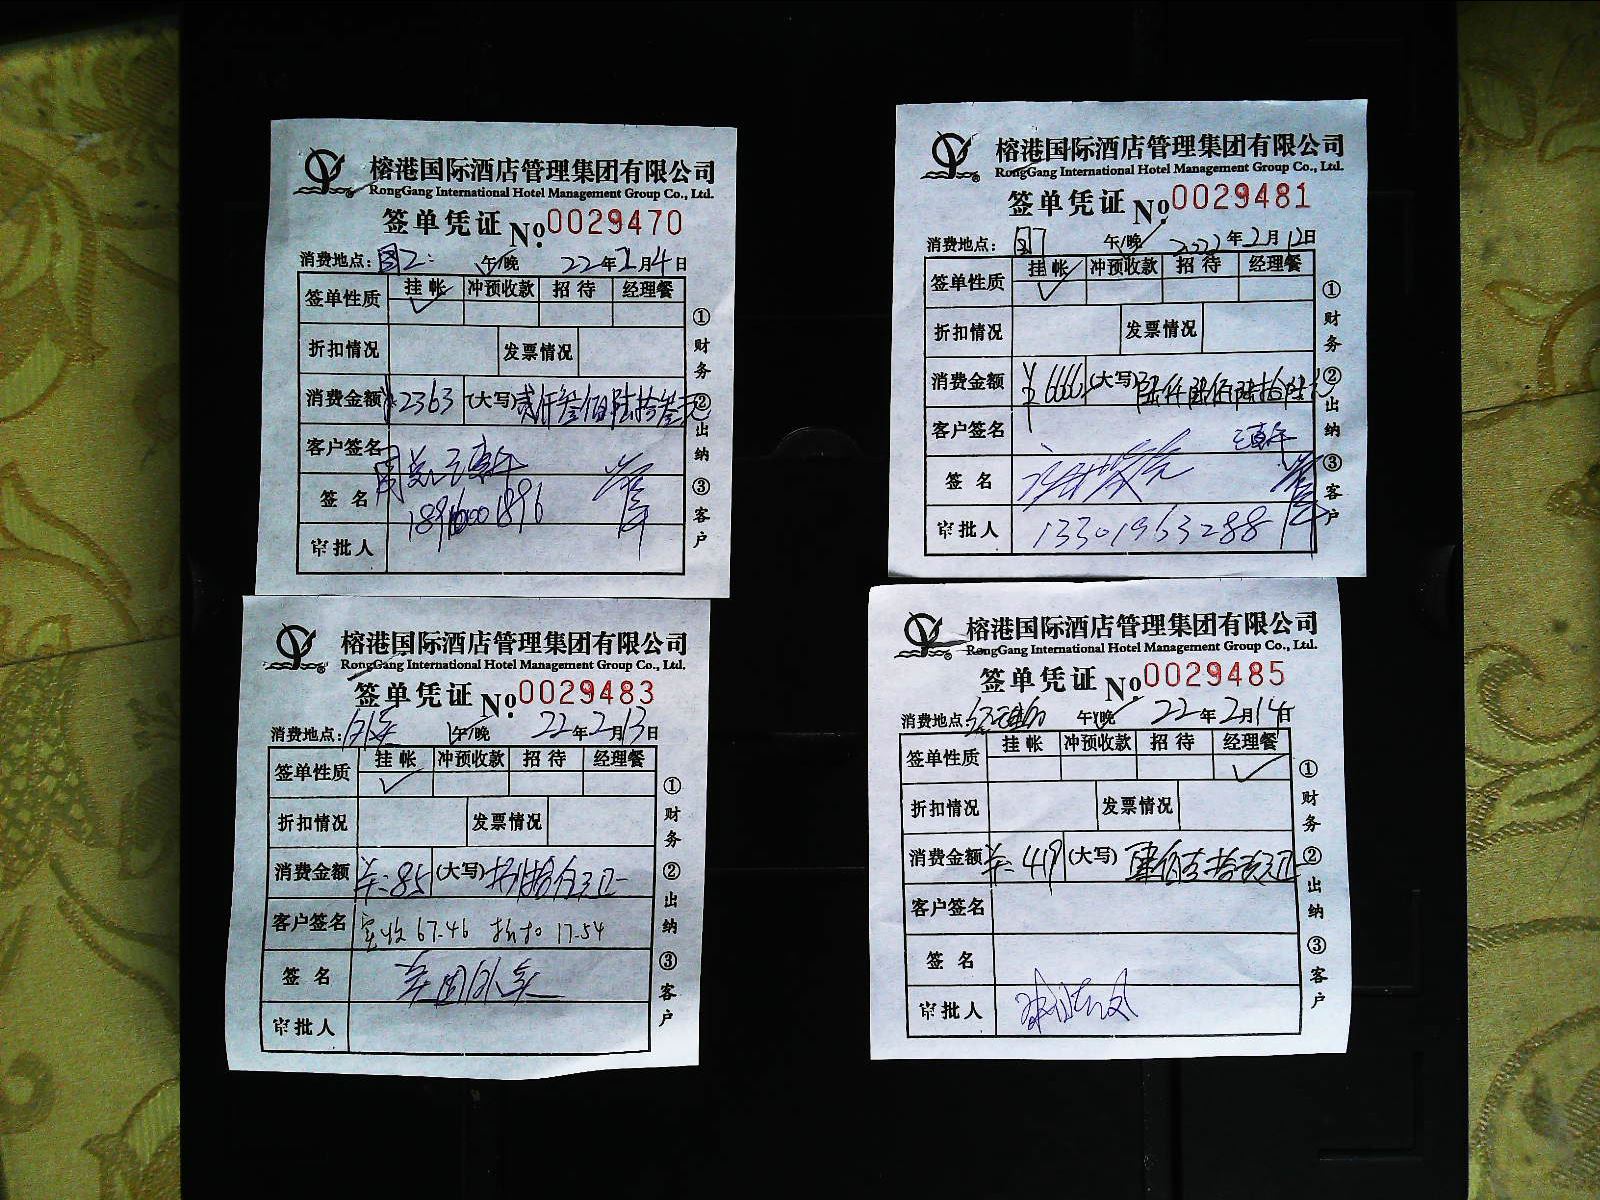 榕港国际酒店管理集团有限公司
RongGang International Hotel Management Group Co., Ltd.
签单凭证 No.0029470
消费地点: 午/晚 22年2月4日
签单性质 挂帐 冲预收款 招待 经理餐
折扣情况 发票情况
消费金额 ¥2363 (大写) 贰仟叁佰陆拾叁元
客户签名
签名
审批人
①财务 ②出纳 ③客户
榕港国际酒店管理集团有限公司
RongGang International Hotel Management Group Co., Ltd.
签单凭证 No.0029481
消费地点: 午/晚 2022年2月12日
签单性质 挂帐 冲预收款 招待 经理餐
折扣情况 发票情况
消费金额 ¥6666 (大写) 陆仟陆佰陆拾陆元
客户签名
签名
审批人 13301963288
①财务 ②出纳 ③客户
榕港国际酒店管理集团有限公司
RongGang International Hotel Management Group Co., Ltd.
签单凭证 No.0029483
消费地点: 外卖 午/晚 22年2月13日
签单性质 挂帐 冲预收款 招待 经理餐
折扣情况 发票情况
消费金额 ¥:85 (大写) 捌拾伍元正
客户签名 实收 67.46 折扣 17.54
签名 美团外卖
审批人
①财务 ②出纳 ③客户
榕港国际酒店管理集团有限公司
RongGang International Hotel Management Group Co., Ltd.
签单凭证 No.0029485
消费地点: 午/晚 22年2月14日
签单性质 挂帐 冲预收款 招待 经理餐
折扣情况 发票情况
消费金额 ¥:419 (大写) 肆佰壹拾玖元正
客户签名
签名
审批人
①财务 ②出纳 ③客户